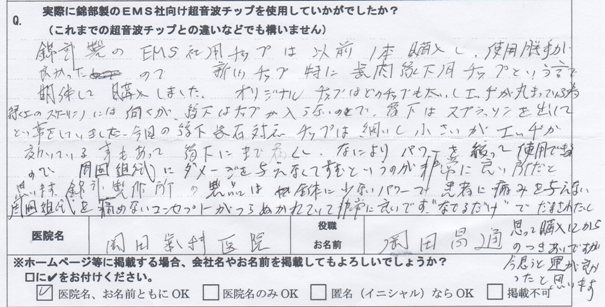 Q. 実際に錦部製のEMS社向け超音波チップを使用していかがでしたか?
(これまでの超音波チップとの違いなどでも構いません)
錦部製のEMS社用チップは以前1本購入し、使用感が
よかったので 新しいチップ 特に歯肉縁下用チップという事で
期待して購入しました。オリジナルチップはどのチップも太いしエッヂが丸まっている為
縁上のスケーリングには向くが、縁下はチップが入らないので、縁下は
していました。今回の縁下歯石対応チップは細いし小さいがエッヂが
効いている事もあって 縁下にまで届くし、なによりパワーを絞って使用できる
ので、周囲組織にダメージを与えなくてすむというのが非常に良い所だと
思います。錦部製作所の製品は 全体に少ないパワーで患者に痛みを与えない
周囲組織を痛めないコンセプトがつらぬかれていて非常に良いです"なでるだけ"でだまされたと
思って購入してから
のつきあいですが
今思うと運が良か
ったと思います
医院名 岡田歯科医院 役職 お名前 岡田昌通
※ホームページ等に掲載する場合、会社名やお名前を掲載してもよろしいでしょうか?
□に✓をお付けください。
☑ 医院名、お名前ともにOK □ 医院名のみOK □ 匿名(イニシャル)ならOK □ 掲載不可